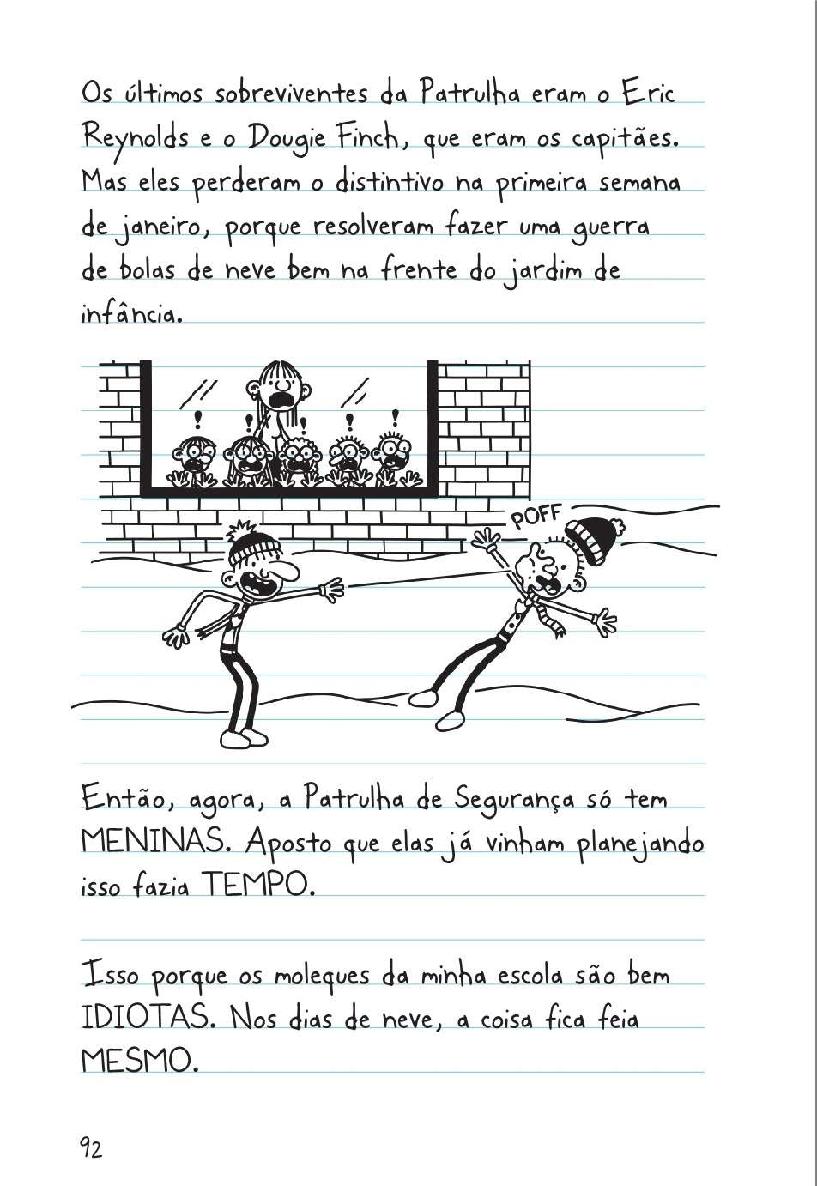 Os últimos sobreviventes da Patrulha eram o Eric
Reynolds e o Dougie Finch, que eram os capitães.
Mas eles perderam o distintivo na primeira semana
de janeiro, porque resolveram fazer uma guerra
de bolas de neve bem na frente do jardim de
infância.
! ! ! ! !
POFF
Então, agora, a Patrulha de Segurança só tem
MENINAS. Aposto que elas já vinham planejando
isso fazia TEMPO.
Isso porque os moleques da minha escola são bem
IDIOTAS. Nos dias de neve, a coisa fica feia
MESMO.
92